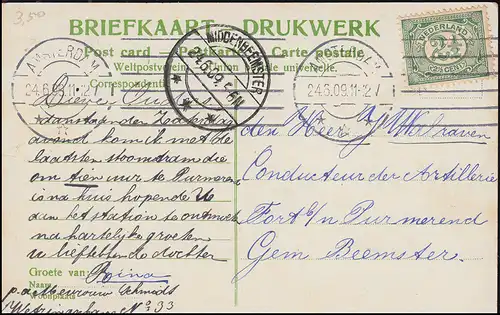 3,50
BRIEFKAART DRUKWERK
Post card Carte postale
Weltpostverein Union universelle.
Correspondentie
AMSTERDAM
24.6.09.11-12V
MIDDENBEEMSTER
24.6.09. 5-6N
24.6.09.11-12V
NEDERLAND
2½
CENT
Lieve Ouders
aanstaanden Zaterdag
avond kom ik met de
laatsten stoomtram die
om tien uur te Purmerend
is na huis hopende U
aan het station te ontmoeten
na hartelijke groeten
u liefhebbende dochter
Groete van:
Naam
Woonplaats
p.a Mevrouw Schmidt
No 33
den Heer J. Walraven
Conducteur der Artillerie
Fort b/n Purmerend
Gem Beemster